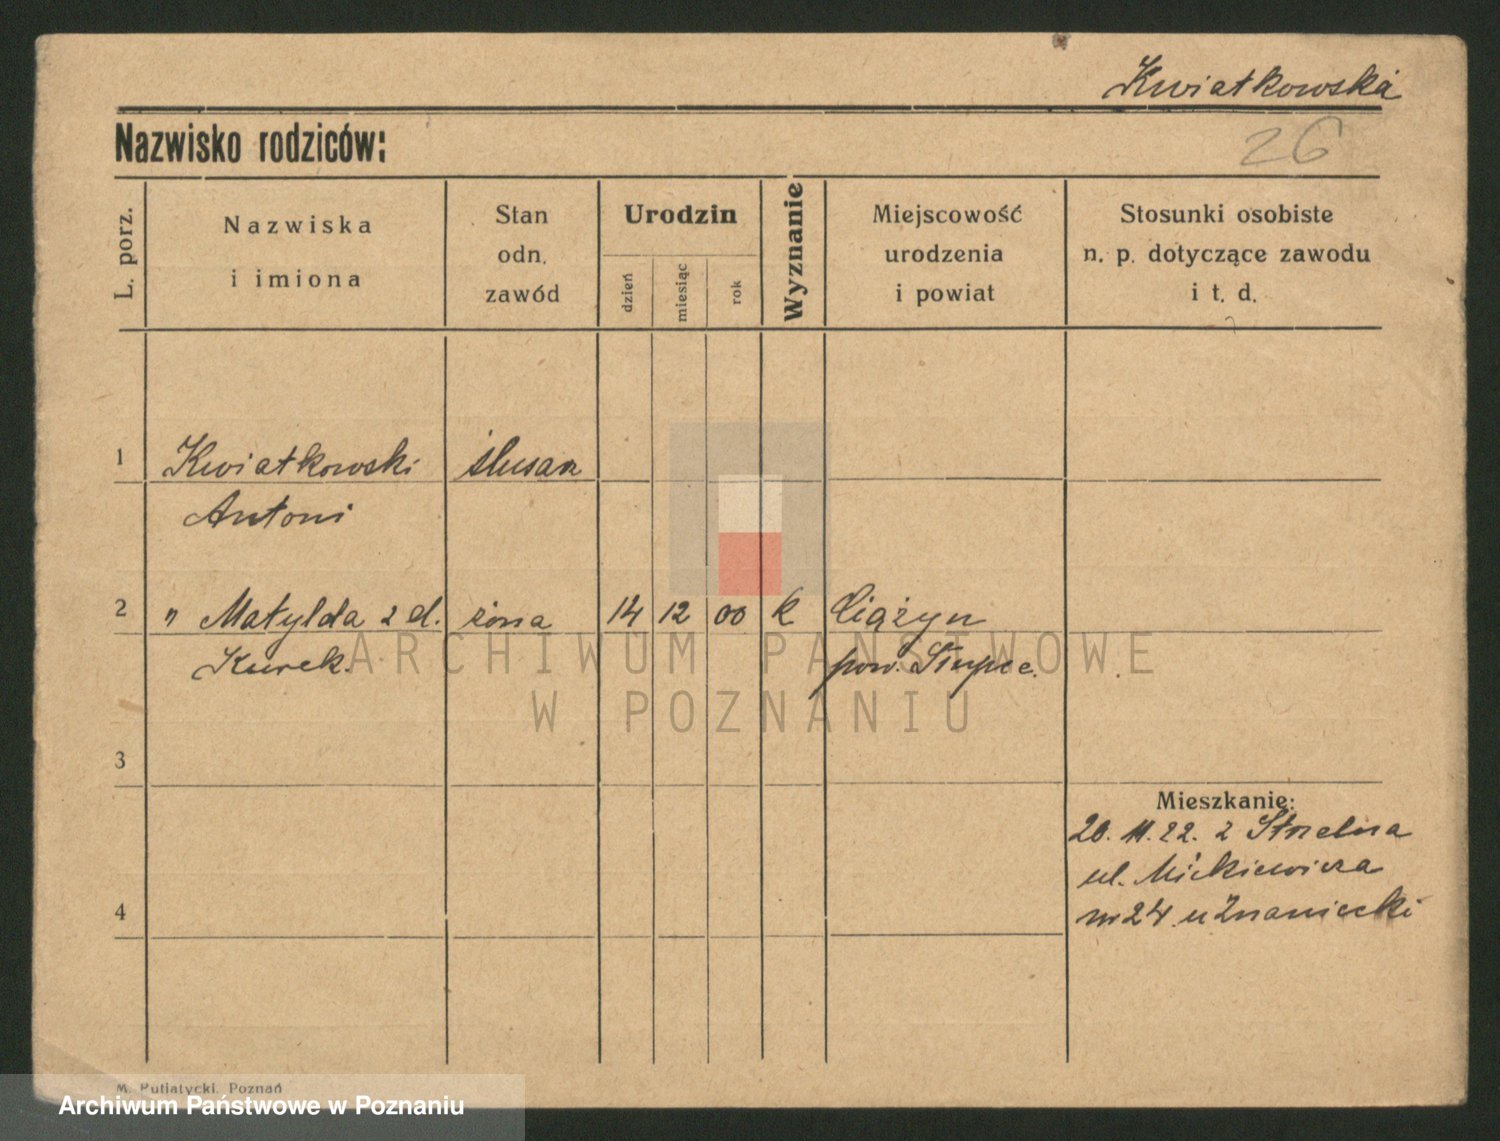 Kwiatkowska
26
Nazwisko rodziców:
L. porz.
Nazwiska
i imiona
Stan
odn.
zawód
Urodzin
dzień
miesiąc
rok
Wyznanie
Miejscowość
urodzenia
i powiat
Stosunki osobiste
n. p. dotyczące zawodu
i t. d.
1 Kwiatkowski ślusarz
Antoni
2 " Matylda z d. żona 14 12 00 k Ciążyn
Kurek. pow. Słupce.
ARCHIWUM PAŃSTWOWE
W POZNANIU
3
Mieszkanie:
20. 11. 22. z Strzelna
ul. Mickiewicza
4
nr 24 u Znaniecki
M. Putiatycki, Poznań
Archiwum Państwowe w Poznaniu